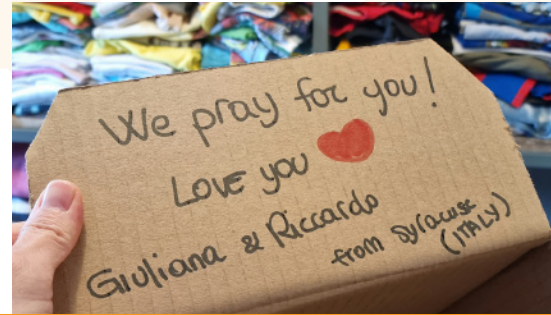 We pray for you!
Love you
Giuliana & Riccardo
from Syracuse
(ITALY)